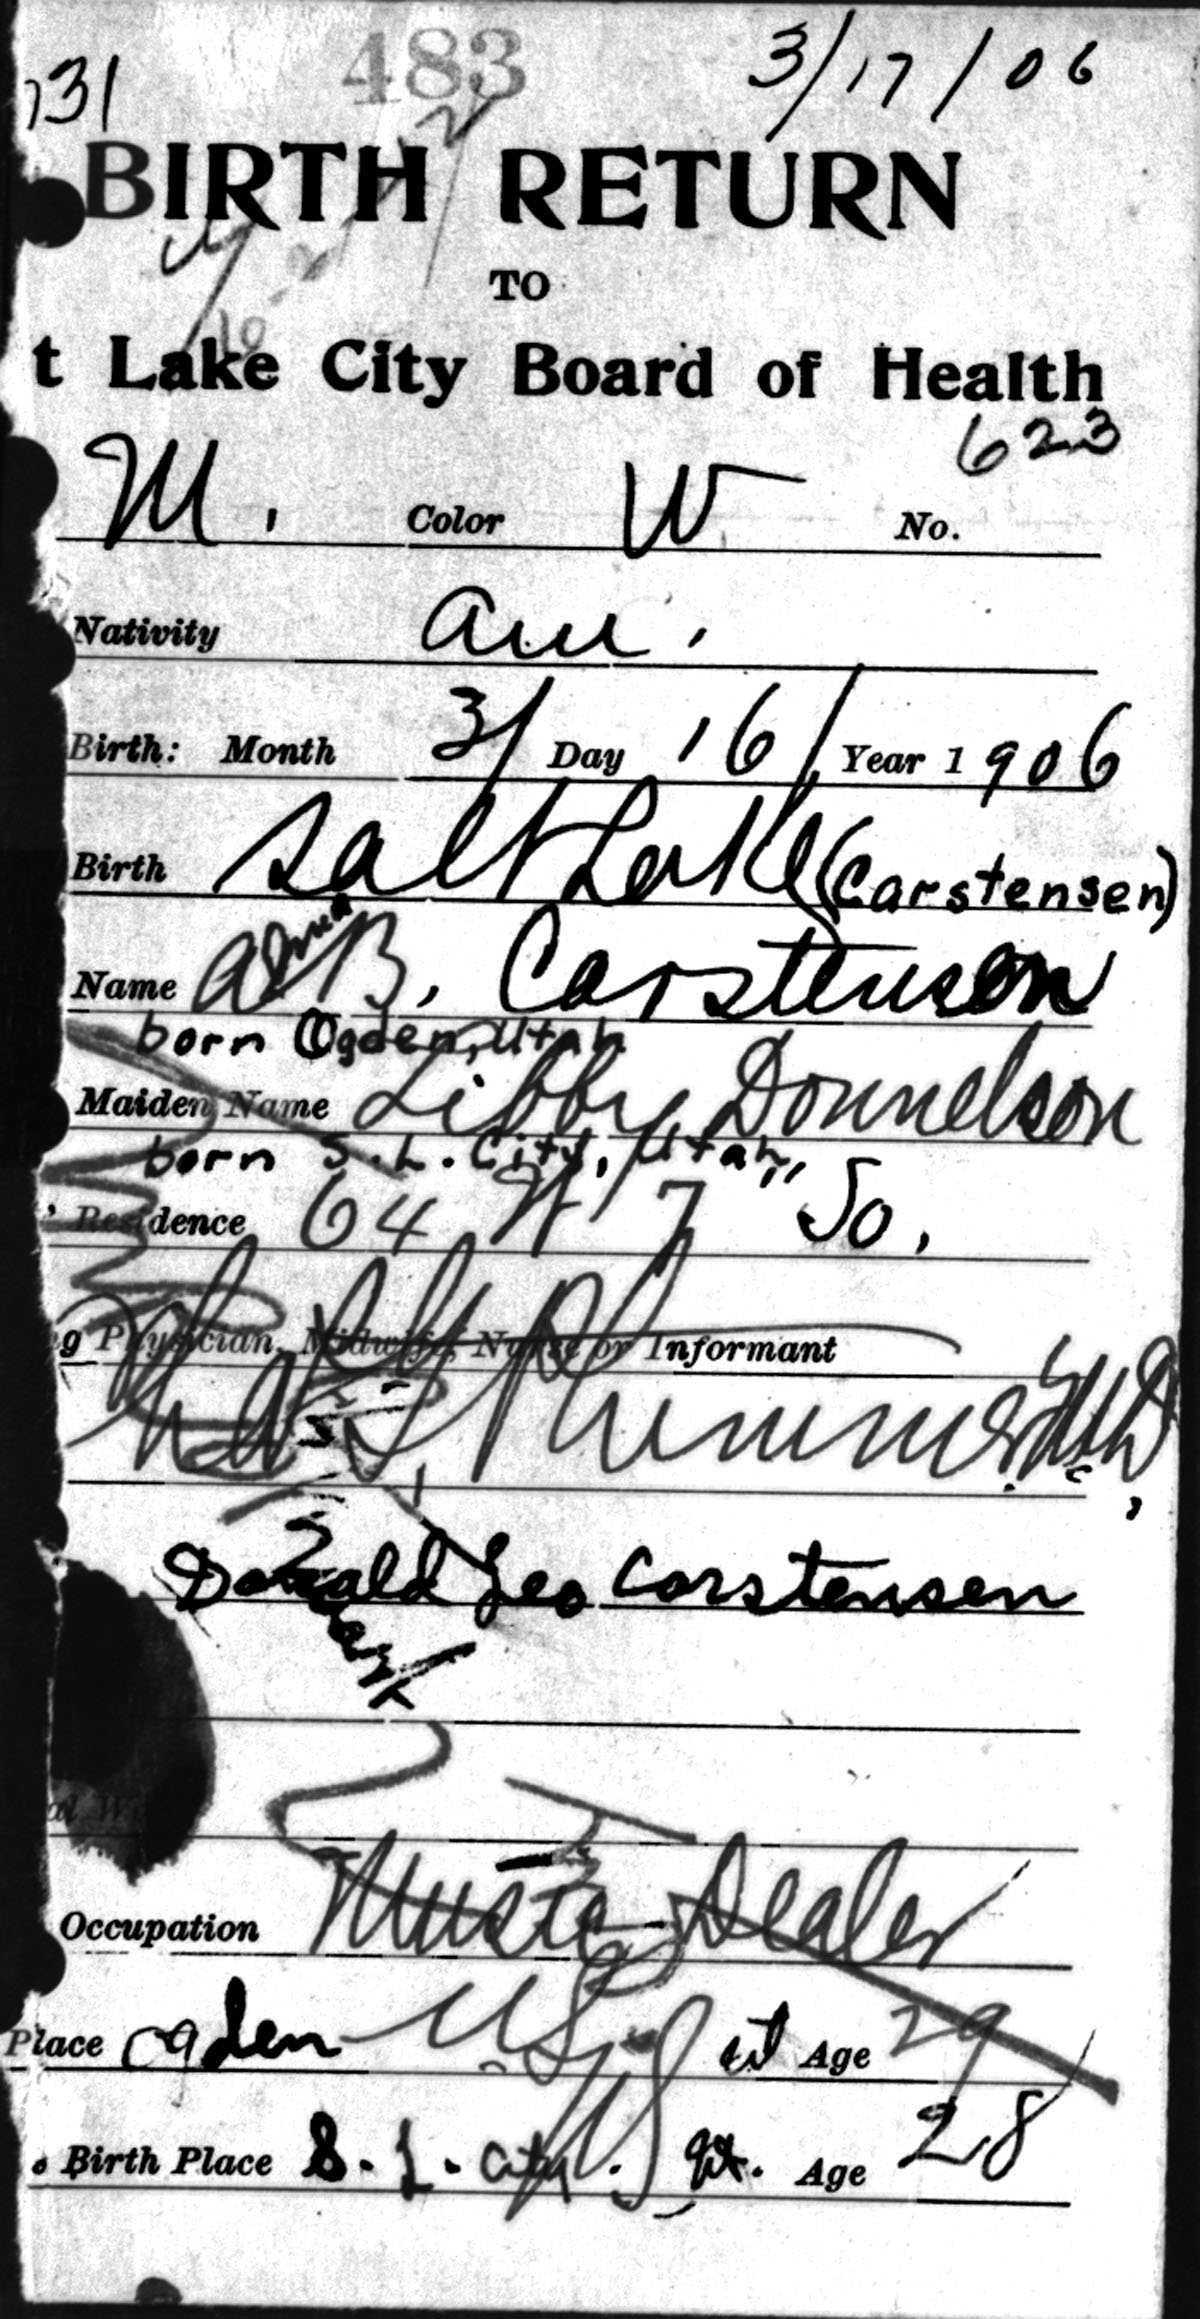 483
731 3/17/06
BIRTH RETURN
TO
t Lake City Board of Health
623
M. Color W No.
Nativity am.
Birth: Month 3/ Day 16/ Year 1906
Birth Salt Lake (Carstensen)
Name A B. Carstensen
born Ogden, Utah
Maiden Name Libby Donnelson
born S.L. City, Utah
Residence 64 W 7" So.
g Physician, Midwife, Nurse or Informant
Plummer M.D.
Donald Leo Carstensen
al W
Occupation Music Dealer
Place Ogden U.S. ut Age 29
Birth Place S. L. city. U.S. Age 28